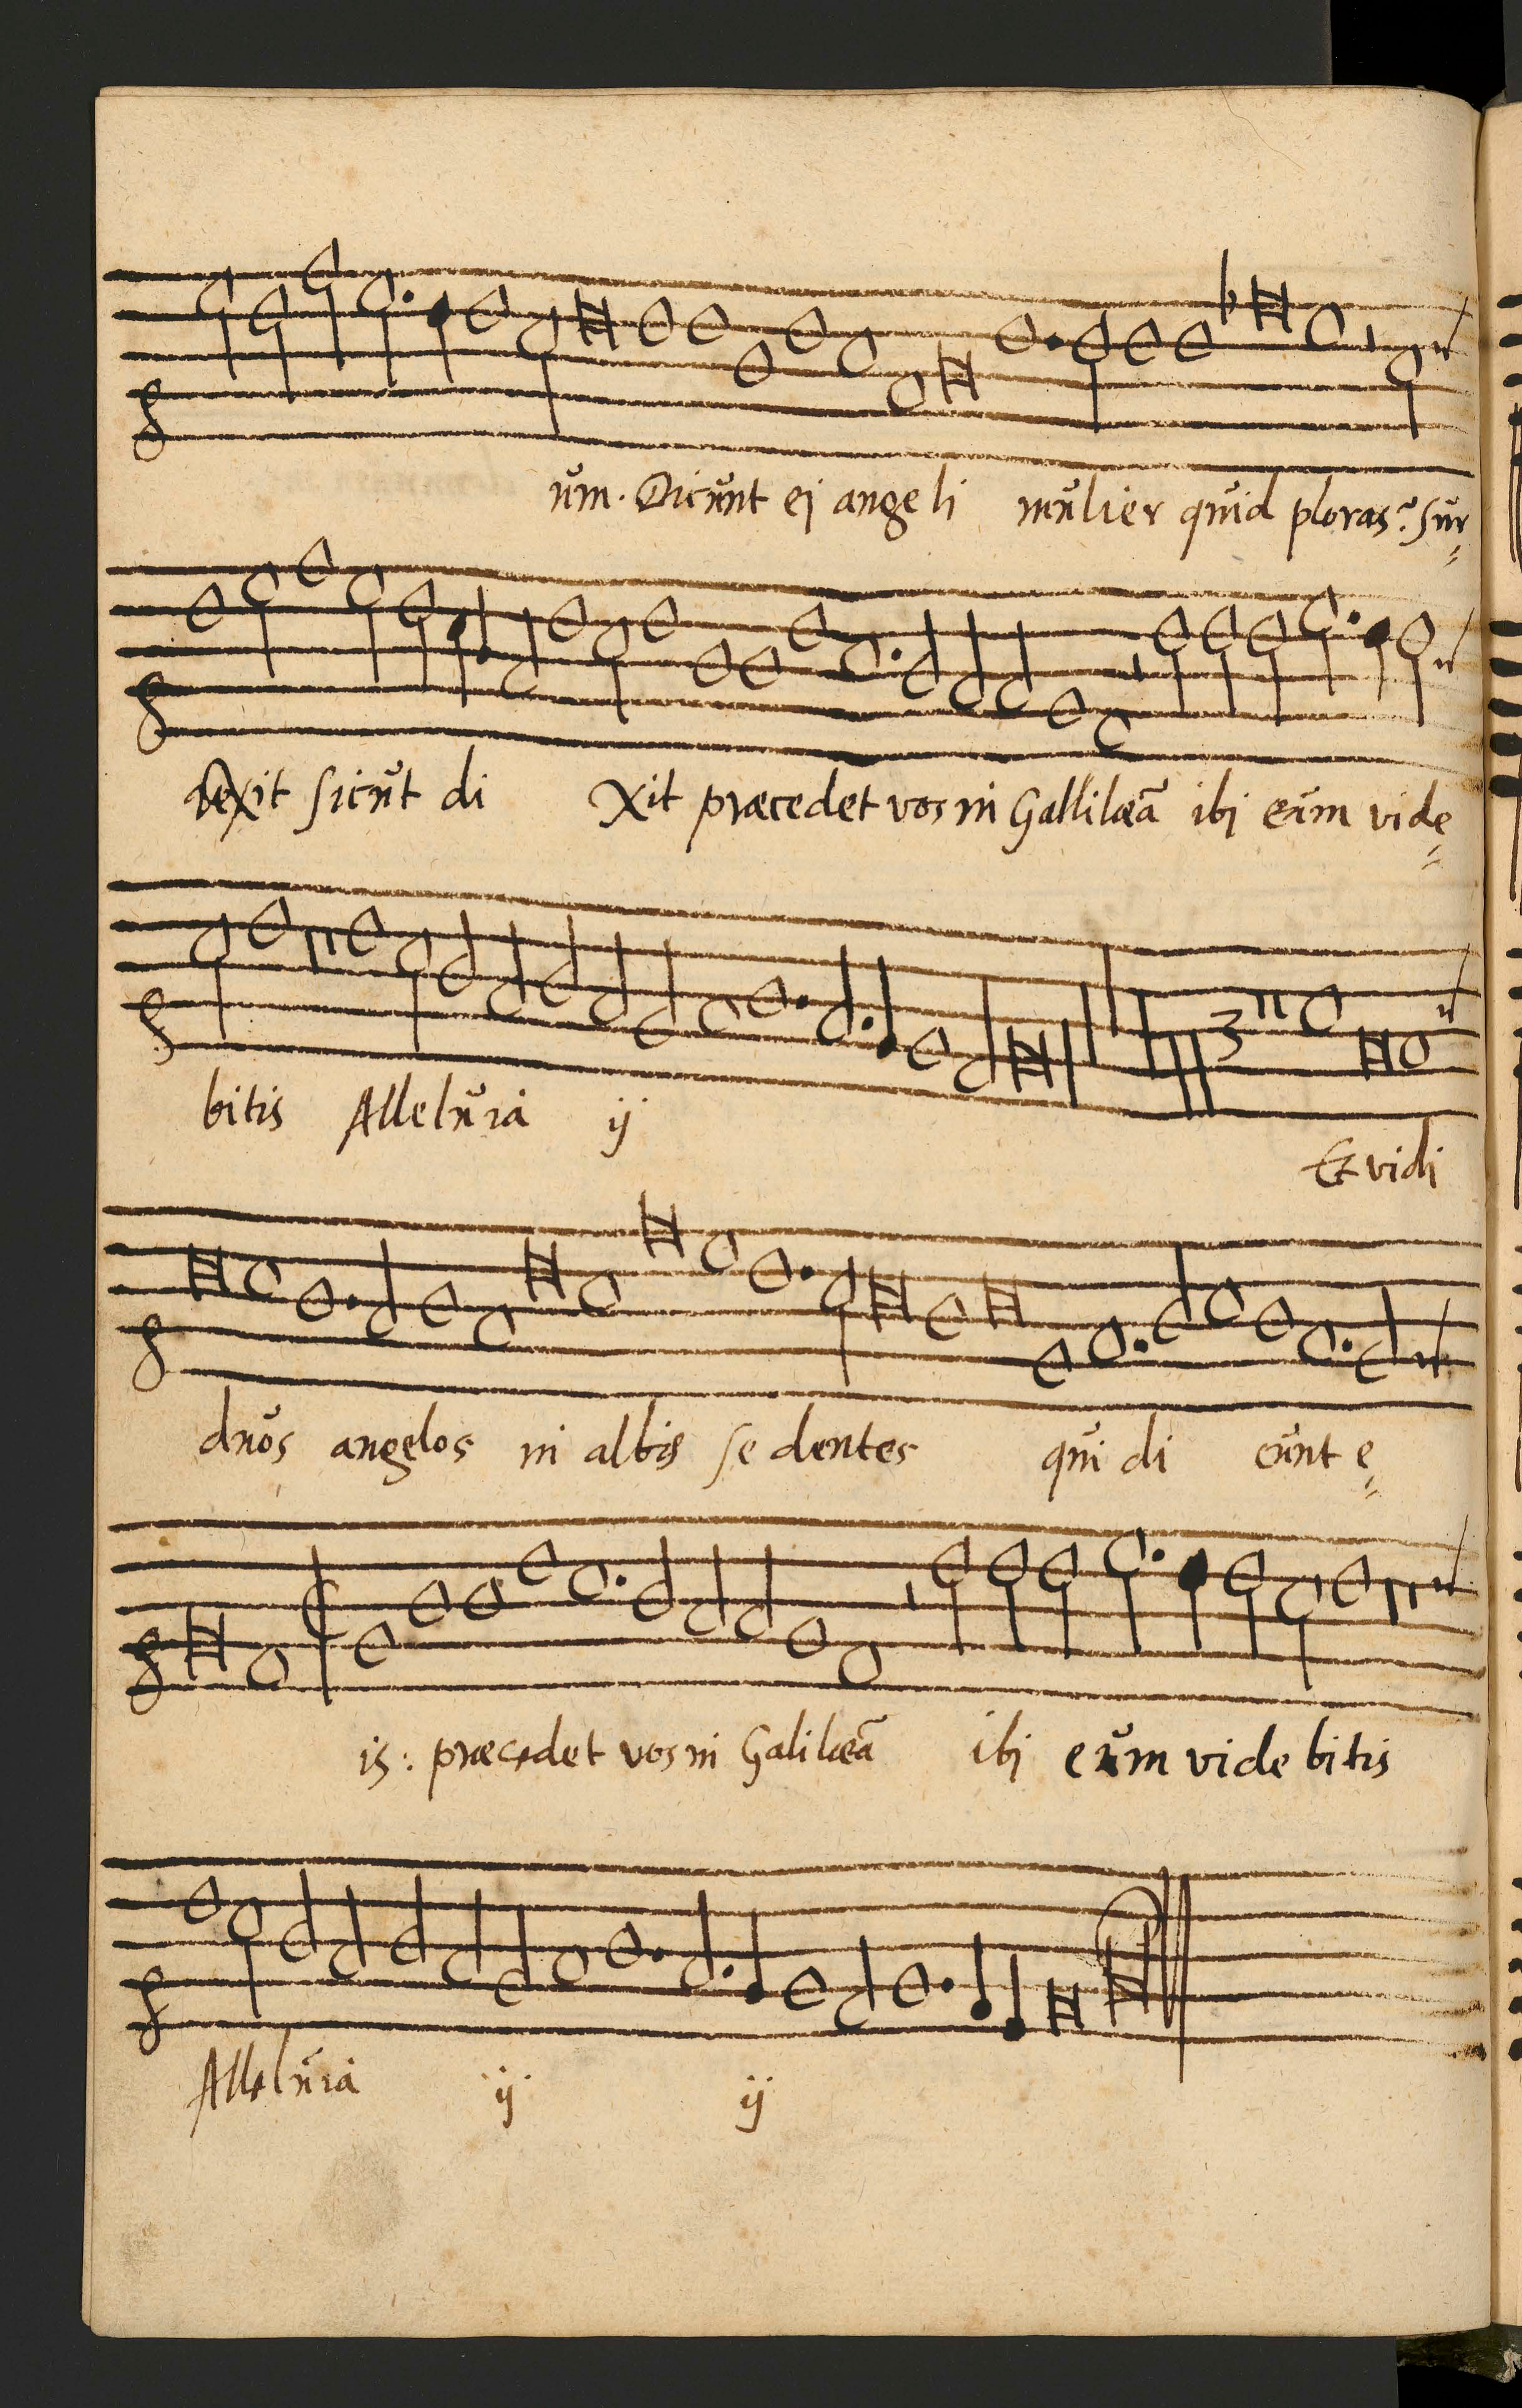 um. Dicunt ei angeli mulier quid ploras? Sur=
rexit sicut di xit præcedet vos in Gallilæā ibi eum vide=
bitis Alleluia ij
3
Et vidi
duos angelos in albis se dentes qui di cunt e=
is: præcedet vos in Galilæā ibi eum vide bitis
Alleluia ij ij